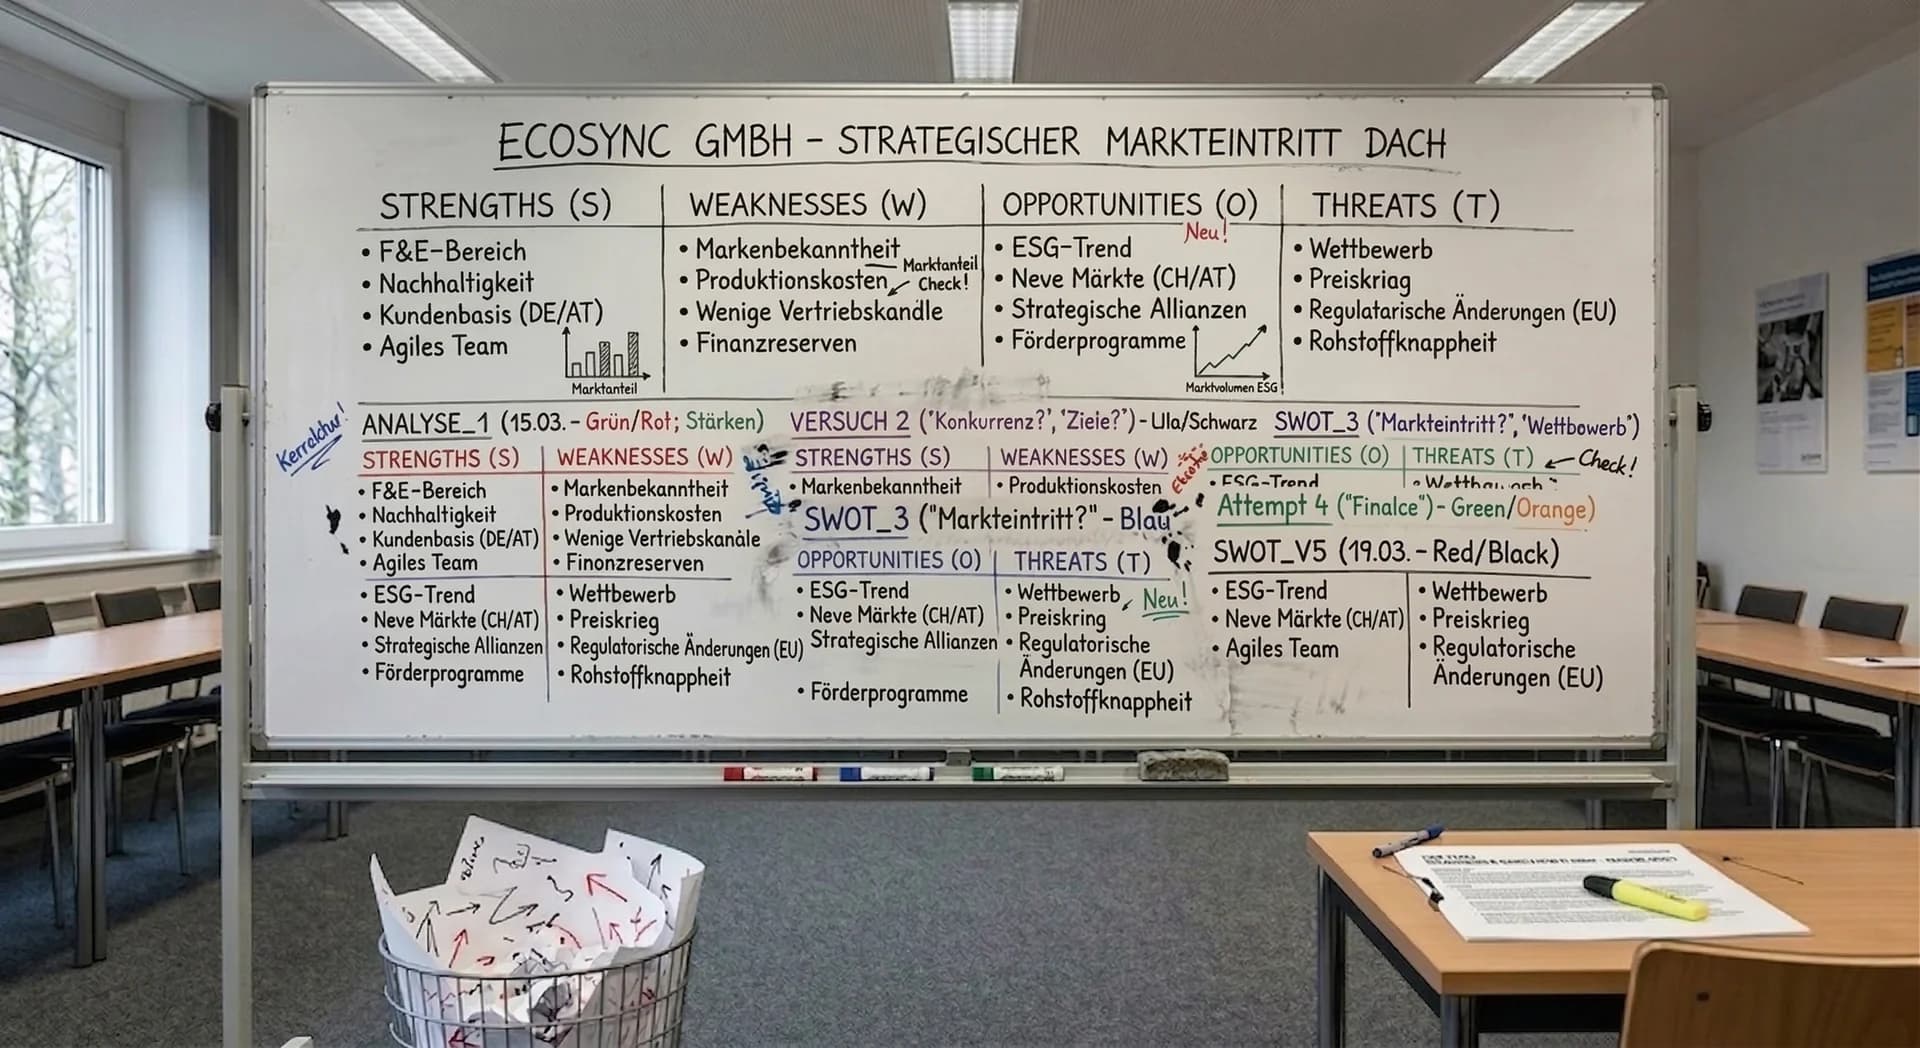 ECOSYNC GMBH – STRATEGISCHER MARKTEINTRITT DACH
STRENGTHS (S)
• F&E-Bereich
• Nachhaltigkeit
• Kundenbasis (DE/AT)
• Agiles Team
Marktanteil
WEAKNESSES (W)
• Markenbekanntheit
• Produktionskosten
• Wenige Vertriebskandle
• Finanzreserven
Marktanteil
Check!
OPPORTUNITIES (O)
Neu!
• ESG-Trend
• Neve Märkte (CH/AT)
• Strategische Allianzen
• Förderprogramme
Marktvolumen ESG
THREATS (T)
• Wettbewerb
• Preiskriag
• Regulatarische Änderungen (EU)
• Rohstoffknappheit
ANALYSE_1 (15.03. – Grün/Rot; Stärken)
STRENGTHS (S)
• F&E-Bereich
• Nachhaltigkeit
• Kundenbasis (DE/AT)
• Agiles Team
WEAKNESSES (W)
• Markenbekanntheit
• Produktionskosten
• Wenige Vertriebskanäle
• Finonzreserven
• ESG-Trend
• Neve Märkte (CH/AT)
• Strategische Allianzen
• Förderprogramme
• Wettbewerb
• Preiskrieg
• Regulatorische Änderungen (EU)
• Rohstoffknappheit
VERSUCH 2 ("Konkurrenz?", "Zieie?") – Ula/Schwarz
STRENGTHS (S)
• Markenbekanntheit
WEAKNESSES (W)
• Produktionskosten
SWOT_3 ("Markteintritt?" – Blau
OPPORTUNITIES (O)
• ESG-Trend
• Neve Märkte (CH/AT)
Strategische Allianzen
• Förderprogramme
THREATS (T)
• Wettbewerb
Neu!
• Preiskring
• Regulatorische
Änderungen (EU)
• Rohstoffknappheit
SWOT_3 ("Markteintritt?", "Wettbowerb")
OPPORTUNITIES (O)
• ESG-Trend
THREATS (T)
Check!
Attempt 4 ("Finalce") – Green/Orange)
SWOT_V5 (19.03. – Red/Black)
• ESG-Trend
• Neve Märkte (CH/AT)
• Agiles Team
• Wettbewerb
• Preiskrieg
• Regulatorische
Änderungen (EU)